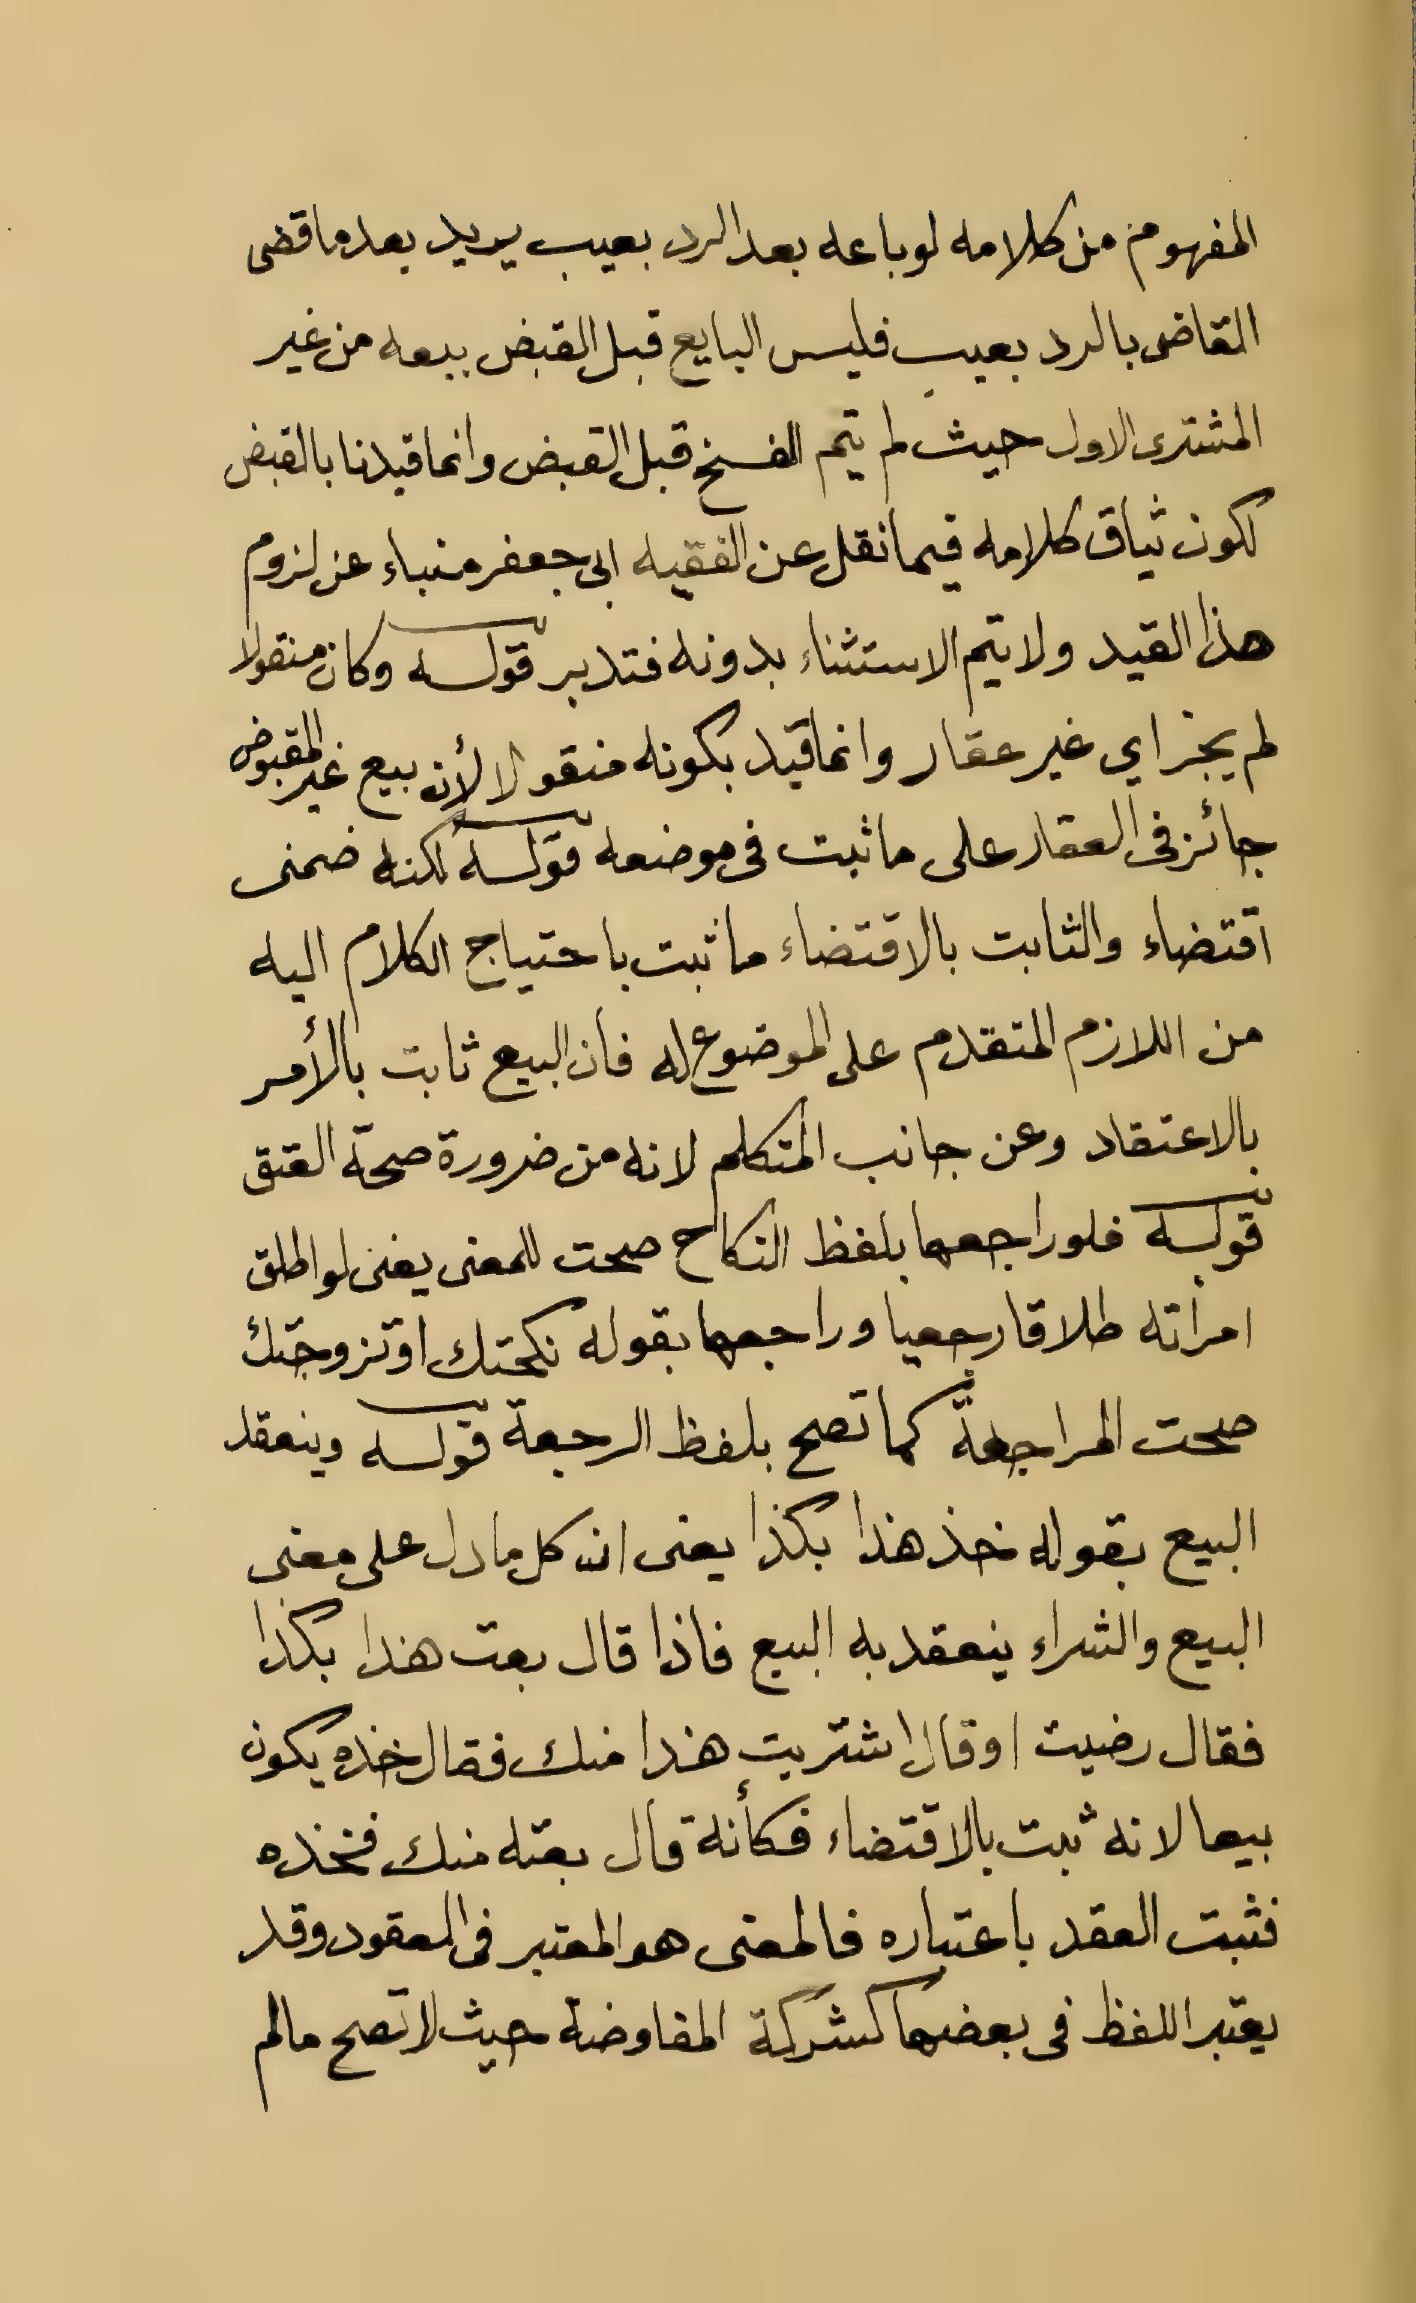 المفهوم من كلامه لو باعه بعد الرد بعيب يريد بعد ما قضى
القاضى بالرد بعيب فليس البايع قبل القبض بيعه من غير
المشترى الاول حيث لم يتم الفسخ قبل القبض وانما قيدنا بالقبض
لكون ثياق كلامه فيما نقل عن الفقيه ابى جعفر منباء عن لزوم
هذا القيد ولا يتم الاستثناء بدونه فتدبر قوله وكان منقولا
لم يجز اي غير عقار وانما قيد بكونه منقولا لأن بيع غير المقبوض
جائز فى العقار على ما ثبت فى موضعه قوله لكنه ضمنى
اقتضاء والثابت بالاقتضاء ما ثبت باحتياج الكلام اليه
من اللازم المتقدم على الموضوع له فان البيع ثابت بالأمر
بالاعتقاد وعن جانب المتكلم لانه من ضرورة صحة العتق
قوله فلو راجعها بلفظ النكاح صحت للمعنى يعنى لو اطلق
امرأته طلاقا رجعيا وراجعها بقوله نكحتك او تزوجتك
صحت المراجعة كما تصح بلفظ الرجعة قوله وينعقد
البيع بقوله خذ هذا بكذا يعنى ان كل ما دل على معنى
البيع والشراء ينعقد به البيع فاذا قال بعت هذا بكذا
فقال رضيت او قال اشتريت هذا منك فقال خذه يكون
بيعا لانه ثبت بالاقتضاء فكأنه قال بعته منك فخذه
فثبت العقد باعتباره فالمعنى هو المعتبر فى العقود وقد
يعتبر اللفظ فى بعضها كشركة المفاوضة حيث لا تصح مالم